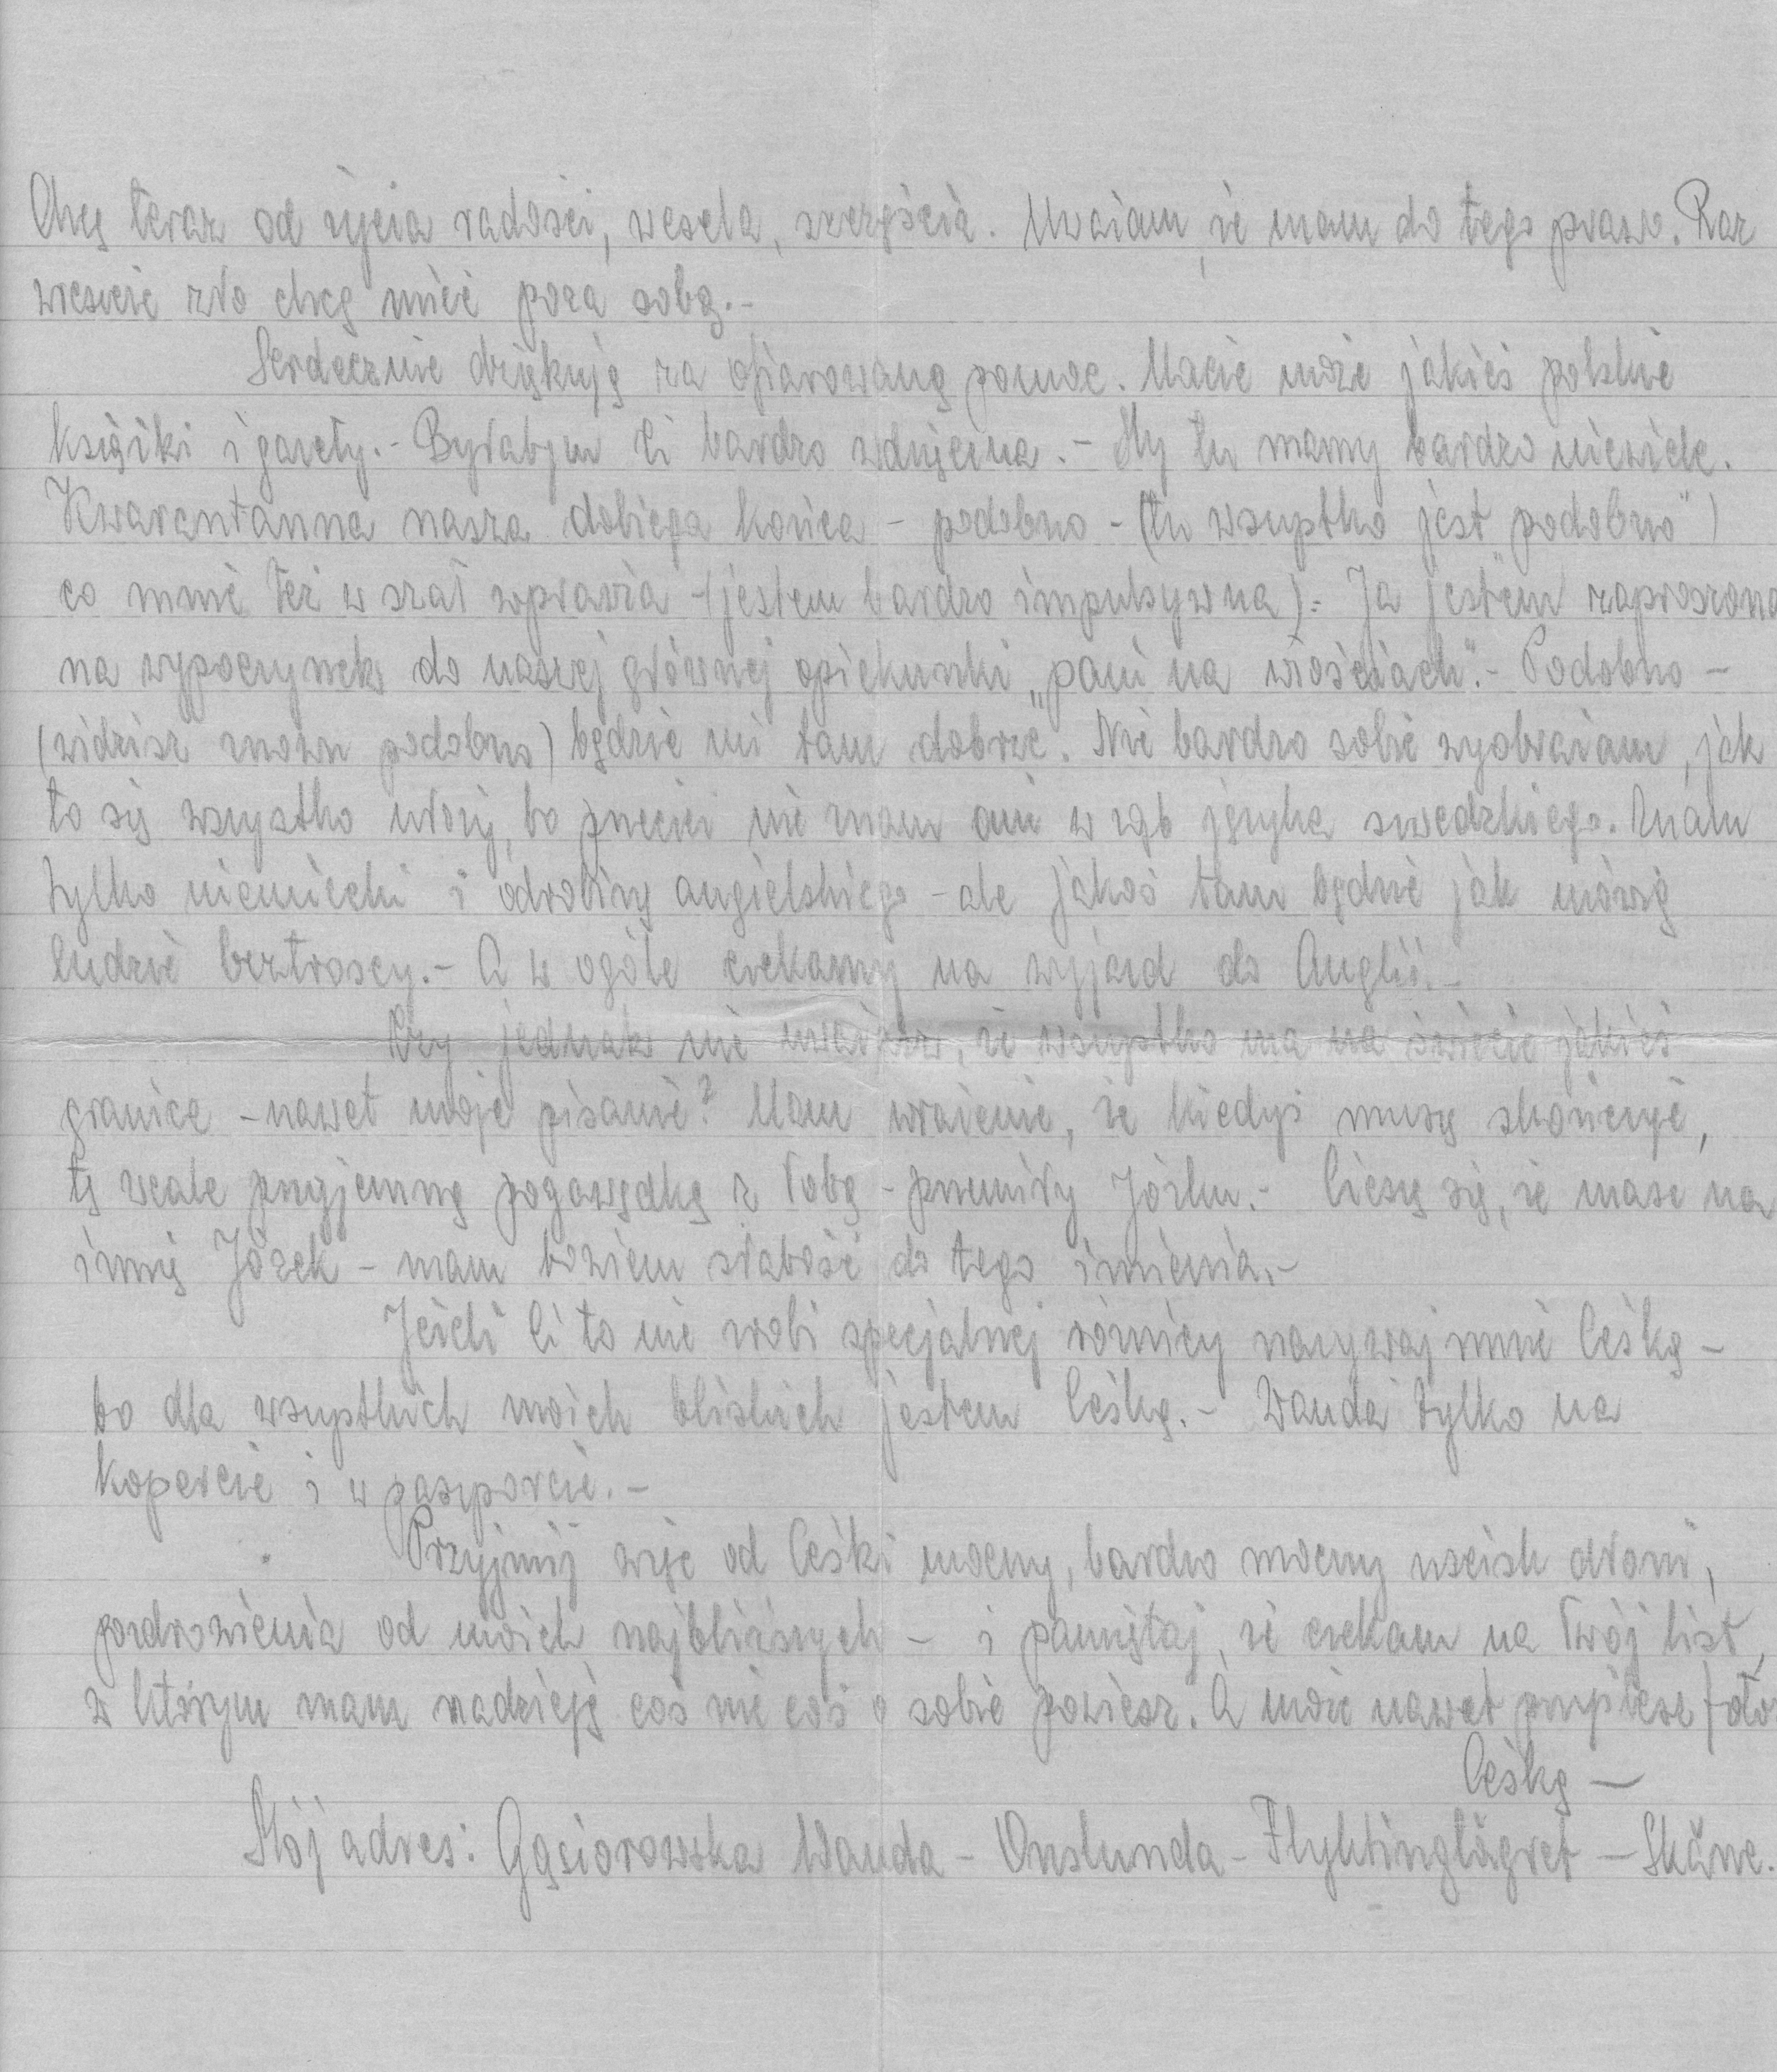 Chcę teraz od życia radości, wesela, szczęścia. Uważam, że mam do tego prawo. Raz
wreszcie zło chcę mieć poza sobą.-
Serdecznie dziękuję za ofiarowaną pomoc. Macie może jakieś polskie
książki i gazety.- Byłabym Ci bardzo wdzięczna.- My tu mamy bardzo niewiele.
Kwarentanna nasza dobiega końca - podobno - (tu wszystko jest „podobno")
co mnie też w szał wprawia - (jestem bardzo impulsywna).- Ja jestem zaproszona
na wypoczynek do naszej głównej opiekunki „pani na włościach".- Podobno -
(widzisz znowu podobno) będzie mi tam dobrze. Nie bardzo sobie wyobrażam, jak
to się wszystko ułoży, bo przecież nie znam ani w ząb języka szwedzkiego. Znam
tylko niemiecki i odrobinę angielskiego - ale jakoś tam będzie jak mówią
ludzie beztroscy.- A w ogóle czekamy na wyjazd do Anglii.-
Czy jednak nie uważasz, że wszystko ma na świecie jakieś
granice - nawet moje pisanie? Mam wrażenie, że kiedyś muszę skończyć,
tę wcale przyjemną pogawędkę z Tobą - przemiły Józku.- Cieszę się, że masz na
imię Józek - mam bowiem słabość do tego imienia.-
Jeżeli Ci to nie robi specjalnej różnicy nazywaj mnie Ceśką -
bo dla wszystkich moich bliskich jestem Ceśką.- Wanda tylko na
kopercie i w paszporcie.-
Przyjmij więc od Ceśki mocny, bardzo mocny uścisk dłoni,
pozdrowienia od moich najbliższych - i pamiętaj, że czekam na Twój list,
w którym mam nadzieję coś nie coś o sobie powiesz. A może nawet przyślesz foto
Ceśka —
Mój adres: Gąsiorowska Wanda - Onslunda - Flyktinglägret - Skåne.